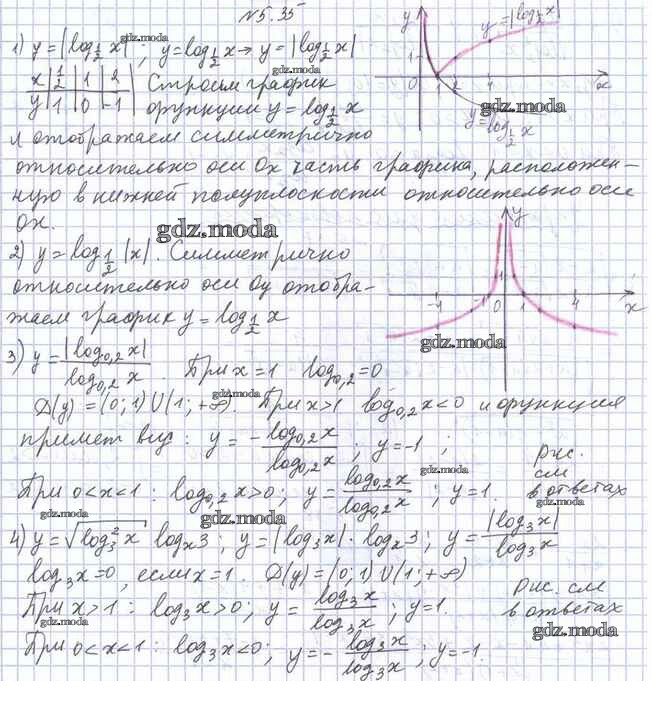 №5.35
1) y=|log_{1/2} x| ; y=log_{1/2} x → y=|log_{1/2} x|
x | 1/2 | 1 | 2 Строим график
y | 1 | 0 | -1 функции y=log_{1/2} x
и отображаем симметрично
относительно оси Ox часть графика, расположен-
ную в нижней полуплоскости относительно оси
Ox.
2) y=log_{1/2} |x|. Симметрично
относительно оси Oy отобра-
жаем график y=log_{1/2} x
3) y=|log_{0,2} x|/log_{0,2} x При x=1 log_{0,2}=0
D(y)=(0;1)U(1;+∞). При x>1 log_{0,2} x<0 и функция
примет вид: y=-log_{0,2} x/log_{0,2} x ; y=-1 ;
При 0<x<1: log_{0,2} x>0; y=log_{0,2} x/log_{0,2} x ; y=1.
Рис.
см
в ответах
4) y=√(log_3^2 x) log_x 3 ; y=|log_3 x|·log_x 3 ; y=|log_3 x|/log_3 x
log_3 x=0, если x=1. D(y)=(0;1)U(1;+∞)
При x>1: log_3 x>0; y=log_3 x/log_3 x ; y=1.
Рис. см
в ответах
При 0<x<1: log_3 x<0; y=-log_3 x/log_3 x ; y=-1.
y
y=|log_{1/2} x|
1
0 1 2 4 x
y=log_{1/2} x
y
1
-1 0 1 4 x
gdz.moda
gdz.moda
gdz.moda
gdz.moda
gdz.moda
gdz.moda
gdz.moda
gdz.moda
gdz.moda
gdz.moda
gdz.moda